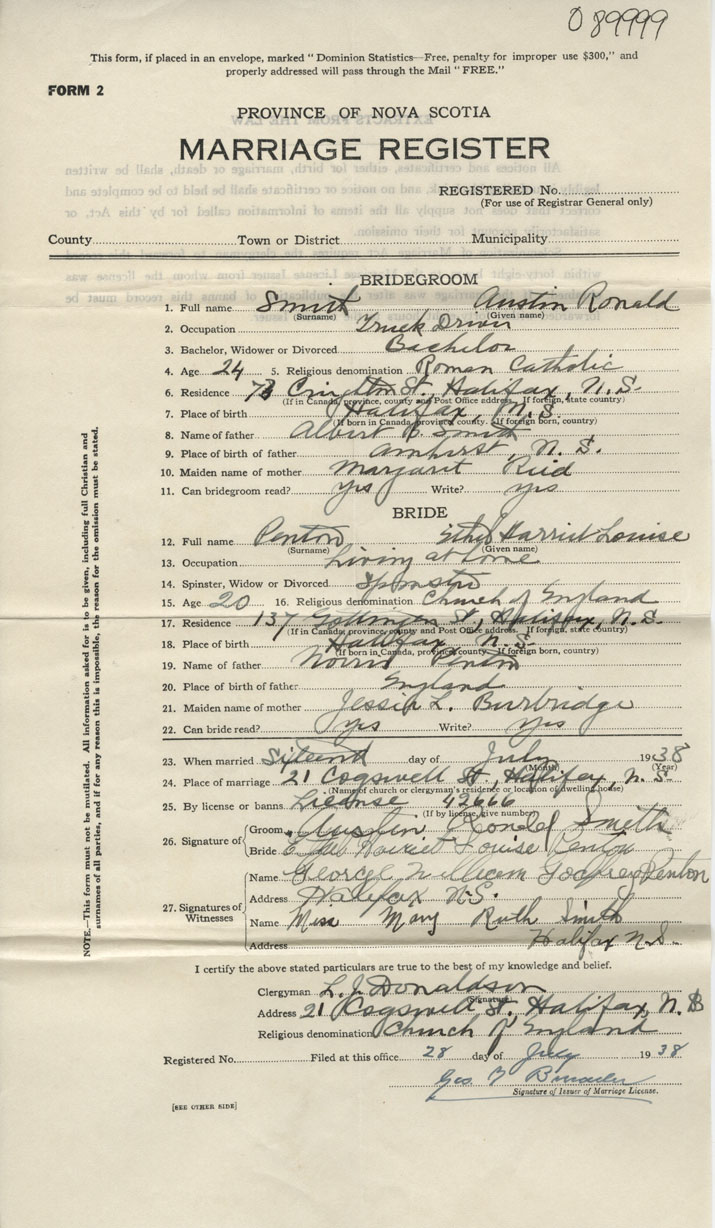 O 89999
This form, if placed in an envelope, marked "Dominion Statistics—Free, penalty for improper use $300," and
properly addressed will pass through the Mail "FREE."
FORM 2
PROVINCE OF NOVA SCOTIA
MARRIAGE REGISTER
REGISTERED No.
(For use of Registrar General only)
County Town or District Municipality
BRIDEGROOM
1. Full name Smith Austin Ronald
(Surname) (Given name)
2. Occupation Truck Driver
3. Bachelor, Widower or Divorced Bachelor
4. Age 24 5. Religious denomination Roman Catholic
6. Residence 73 St., Halifax, N.S.
(If in Canada, province, county and Post Office address. If foreign, state country)
7. Place of birth Halifax, N.S.
(If born in Canada, province county. If foreign born, country)
8. Name of father Albert Smith
9. Place of birth of father Amherst, N.S.
10. Maiden name of mother Margaret Reid
11. Can bridegroom read? yes Write? yes
BRIDE
12. Full name Penton Ethel Harriet Louise
(Surname) (Given name)
13. Occupation Living at home
14. Spinster, Widow or Divorced Spinster
15. Age 20 16. Religious denomination Church of England
17. Residence 137 Gottingen St., Halifax, N.S.
(If in Canada, province, county and Post Office address. If foreign, state country)
18. Place of birth Halifax N.S.
(If born in Canada, province county. If foreign born, country)
19. Name of father Norris Penton
20. Place of birth of father England
21. Maiden name of mother Jessie L. Burbridge
22. Can bride read? Yes Write? Yes
23. When married day of July 1938
(Month) (Year)
24. Place of marriage 21 Cogswell St, Halifax, N.S.
(Name of church or clergyman's residence or location of dwelling house)
25. By license or banns License 43666
(If by license, give number)
26. Signature of
Groom Austin Ronald Smith
Bride Ethel Harriet Louise Penton
27. Signatures of Witnesses
Name George William Godfrey Penton
Address Halifax N.S.
Name Miss Mary Ruth Smith
Address Halifax N.S.
I certify the above stated particulars are true to the best of my knowledge and belief.
Clergyman L. J. Donaldson
(Signature)
Address 21 Cogswell St. Halifax, N.S
Religious denomination Church of England
Registered No. Filed at this office 28 day of July 1938
Geo
Signature of Issuer of Marriage License.
[SEE OTHER SIDE]
NOTE.—This form must not be mutilated. All information asked for is to be given, including full Christian and
surnames of all parties, and if for any reason this is impossible, the reason for the omission must be stated.